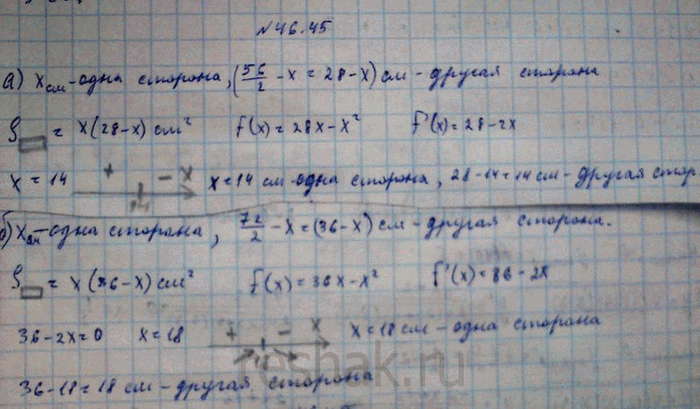 №46.45
а) x см - одна сторона, (56/2 - x = 28 - x) см - другая сторона
S▭ = x(28-x) см² f(x) = 28x - x² f'(x) = 28 - 2x
x = 14 + - x 14 x = 14 см одна сторона, 28-14=14 см - другая стор.
б) x см - одна сторона, 72/2 - x = (36 - x) см - другая сторона.
S▭ = x(36-x) см² f(x) = 36x - x² f'(x) = 36 - 2x
36-2x=0 x=18 + - x x=18 см - одна сторона
36-18=18 см - другая сторона
reshak.ru